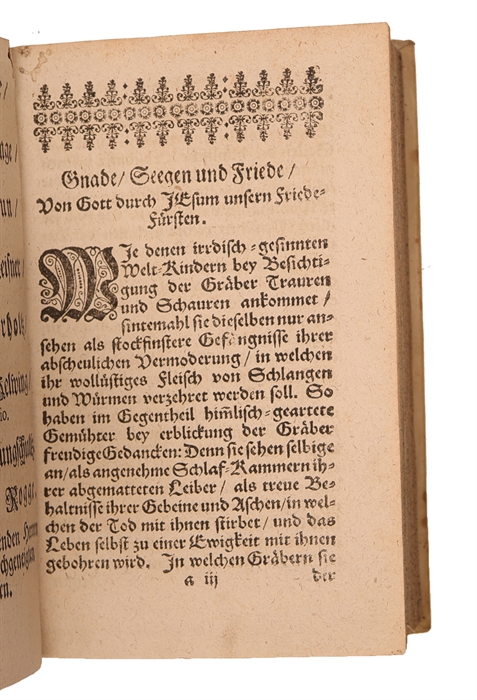 age/
un/
eißner/
Kelwing/
Rogge,
enden Herrn
en.
Gnade/ Seegen und Friede/
Von Gott durch JEsum unsern Friede-
Fürsten.
WIe denen irrdisch-gesinnten
Welt-Kindern bey Besichti-
gung der Gräber Trauren
und Schauren ankommet/
sintemahl sie dieselben nur an-
sehen als stockfinstere Gefängnisse ihrer
abscheulichen Vermoderung/ in welchen
ihr wollüstiges Fleisch von Schlangen
und Würmen verzehret werden soll. So
haben im Gegentheil him̃lisch-geartete
Gemühter bey erblickung der Gräber
freudige Gedancken: Denn sie sehen selbige
an/ als angenehme Schlaf-Kammern ih-
rer abgematteten Leiber/ als treue Be-
hältnisse ihrer Gebeine und Aschen/ in wel-
chen der Tod mit ihnen stirbet/ und das
Leben selbst zu einer Ewigkeit mit ihnen
gebohren wird. In welchen Gräbern sie
a iij der